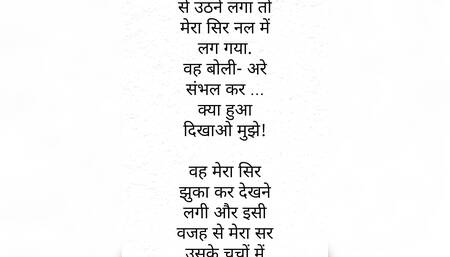 से उठने लगा तो
मेरा सिर नल में
लग गया.
वह बोली- अरे
संभल कर ...
क्या हुआ
दिखाओ मुझे!
वह मेरा सिर
झुका कर देखने
लगी और इसी
वजह से मेरा सर
उसके चूचों में